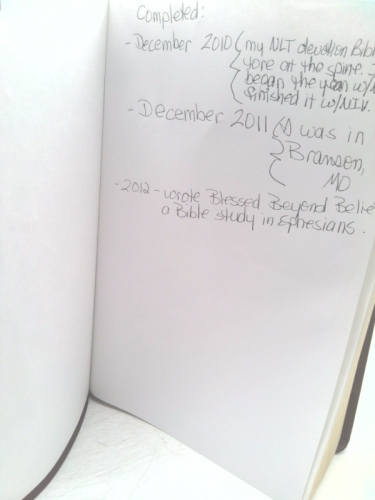 Completed:
- December 2010 ( my NLT devotion Bibl
tore at the spine. I
began the year w/
finished it w/NIV.
- December 2011 ( I was in
Branson,
MO
- 2012 - wrote Blessed Beyond Belie
a Bible study in Ephesians.